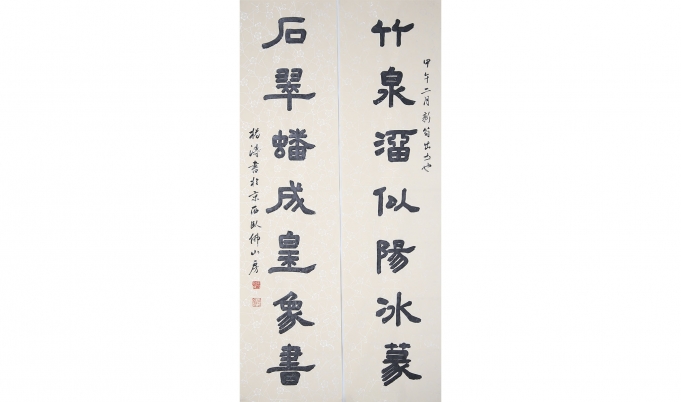 甲午二月新筍出
竹泉溜似陽冰篆
石翠蟠成皇象書
楊濤書於京西臥佛山房